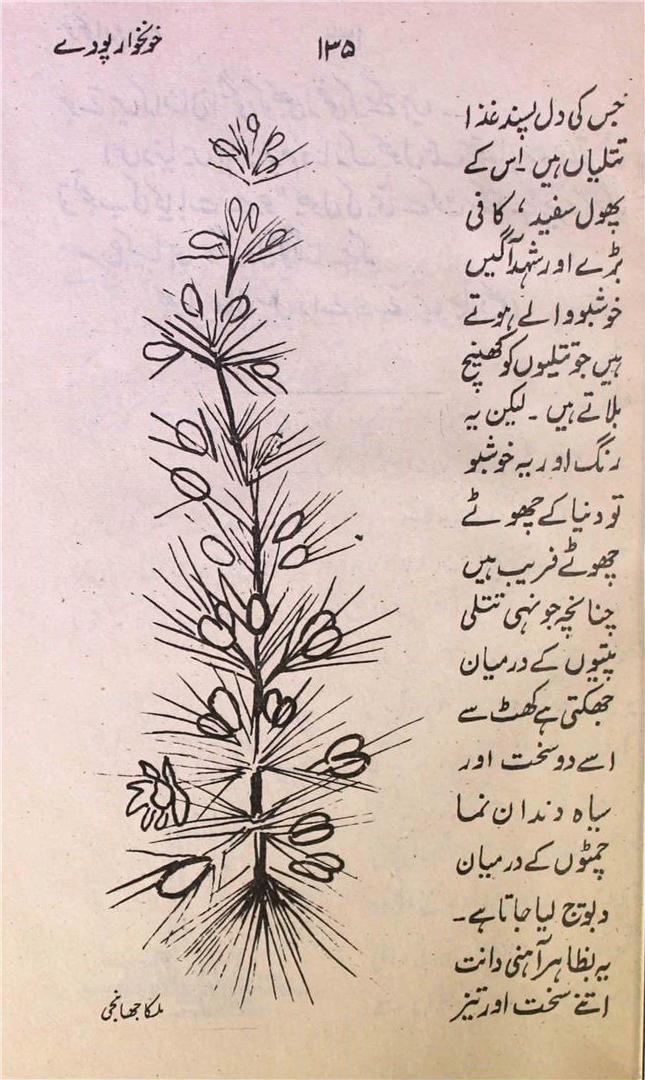 خونخوار پودے
۱۳۵
جس کی دل پسند غذا
تتلیاں ہیں۔ اس کے
پھول سفید، کافی
بڑے اور شہد آگیں
خوشبو والے ہوتے
ہیں جو تتلیوں کو کھینچ
بلاتے ہیں۔ لیکن یہ
رنگ اور یہ خوشبو
تو دنیا کے چھوٹے
چھوٹے فریب ہیں
چنانچہ جونہی تتلی
پتیوں کے درمیان
جھکتی ہے کھٹ سے
اسے دو سخت اور
سیاہ دندان نما
چمٹوں کے درمیان
دبوچ لیا جاتا ہے۔
یہ بظاہر آہنی دانت
اتنے سخت اور تیز
ملکا جھانجی